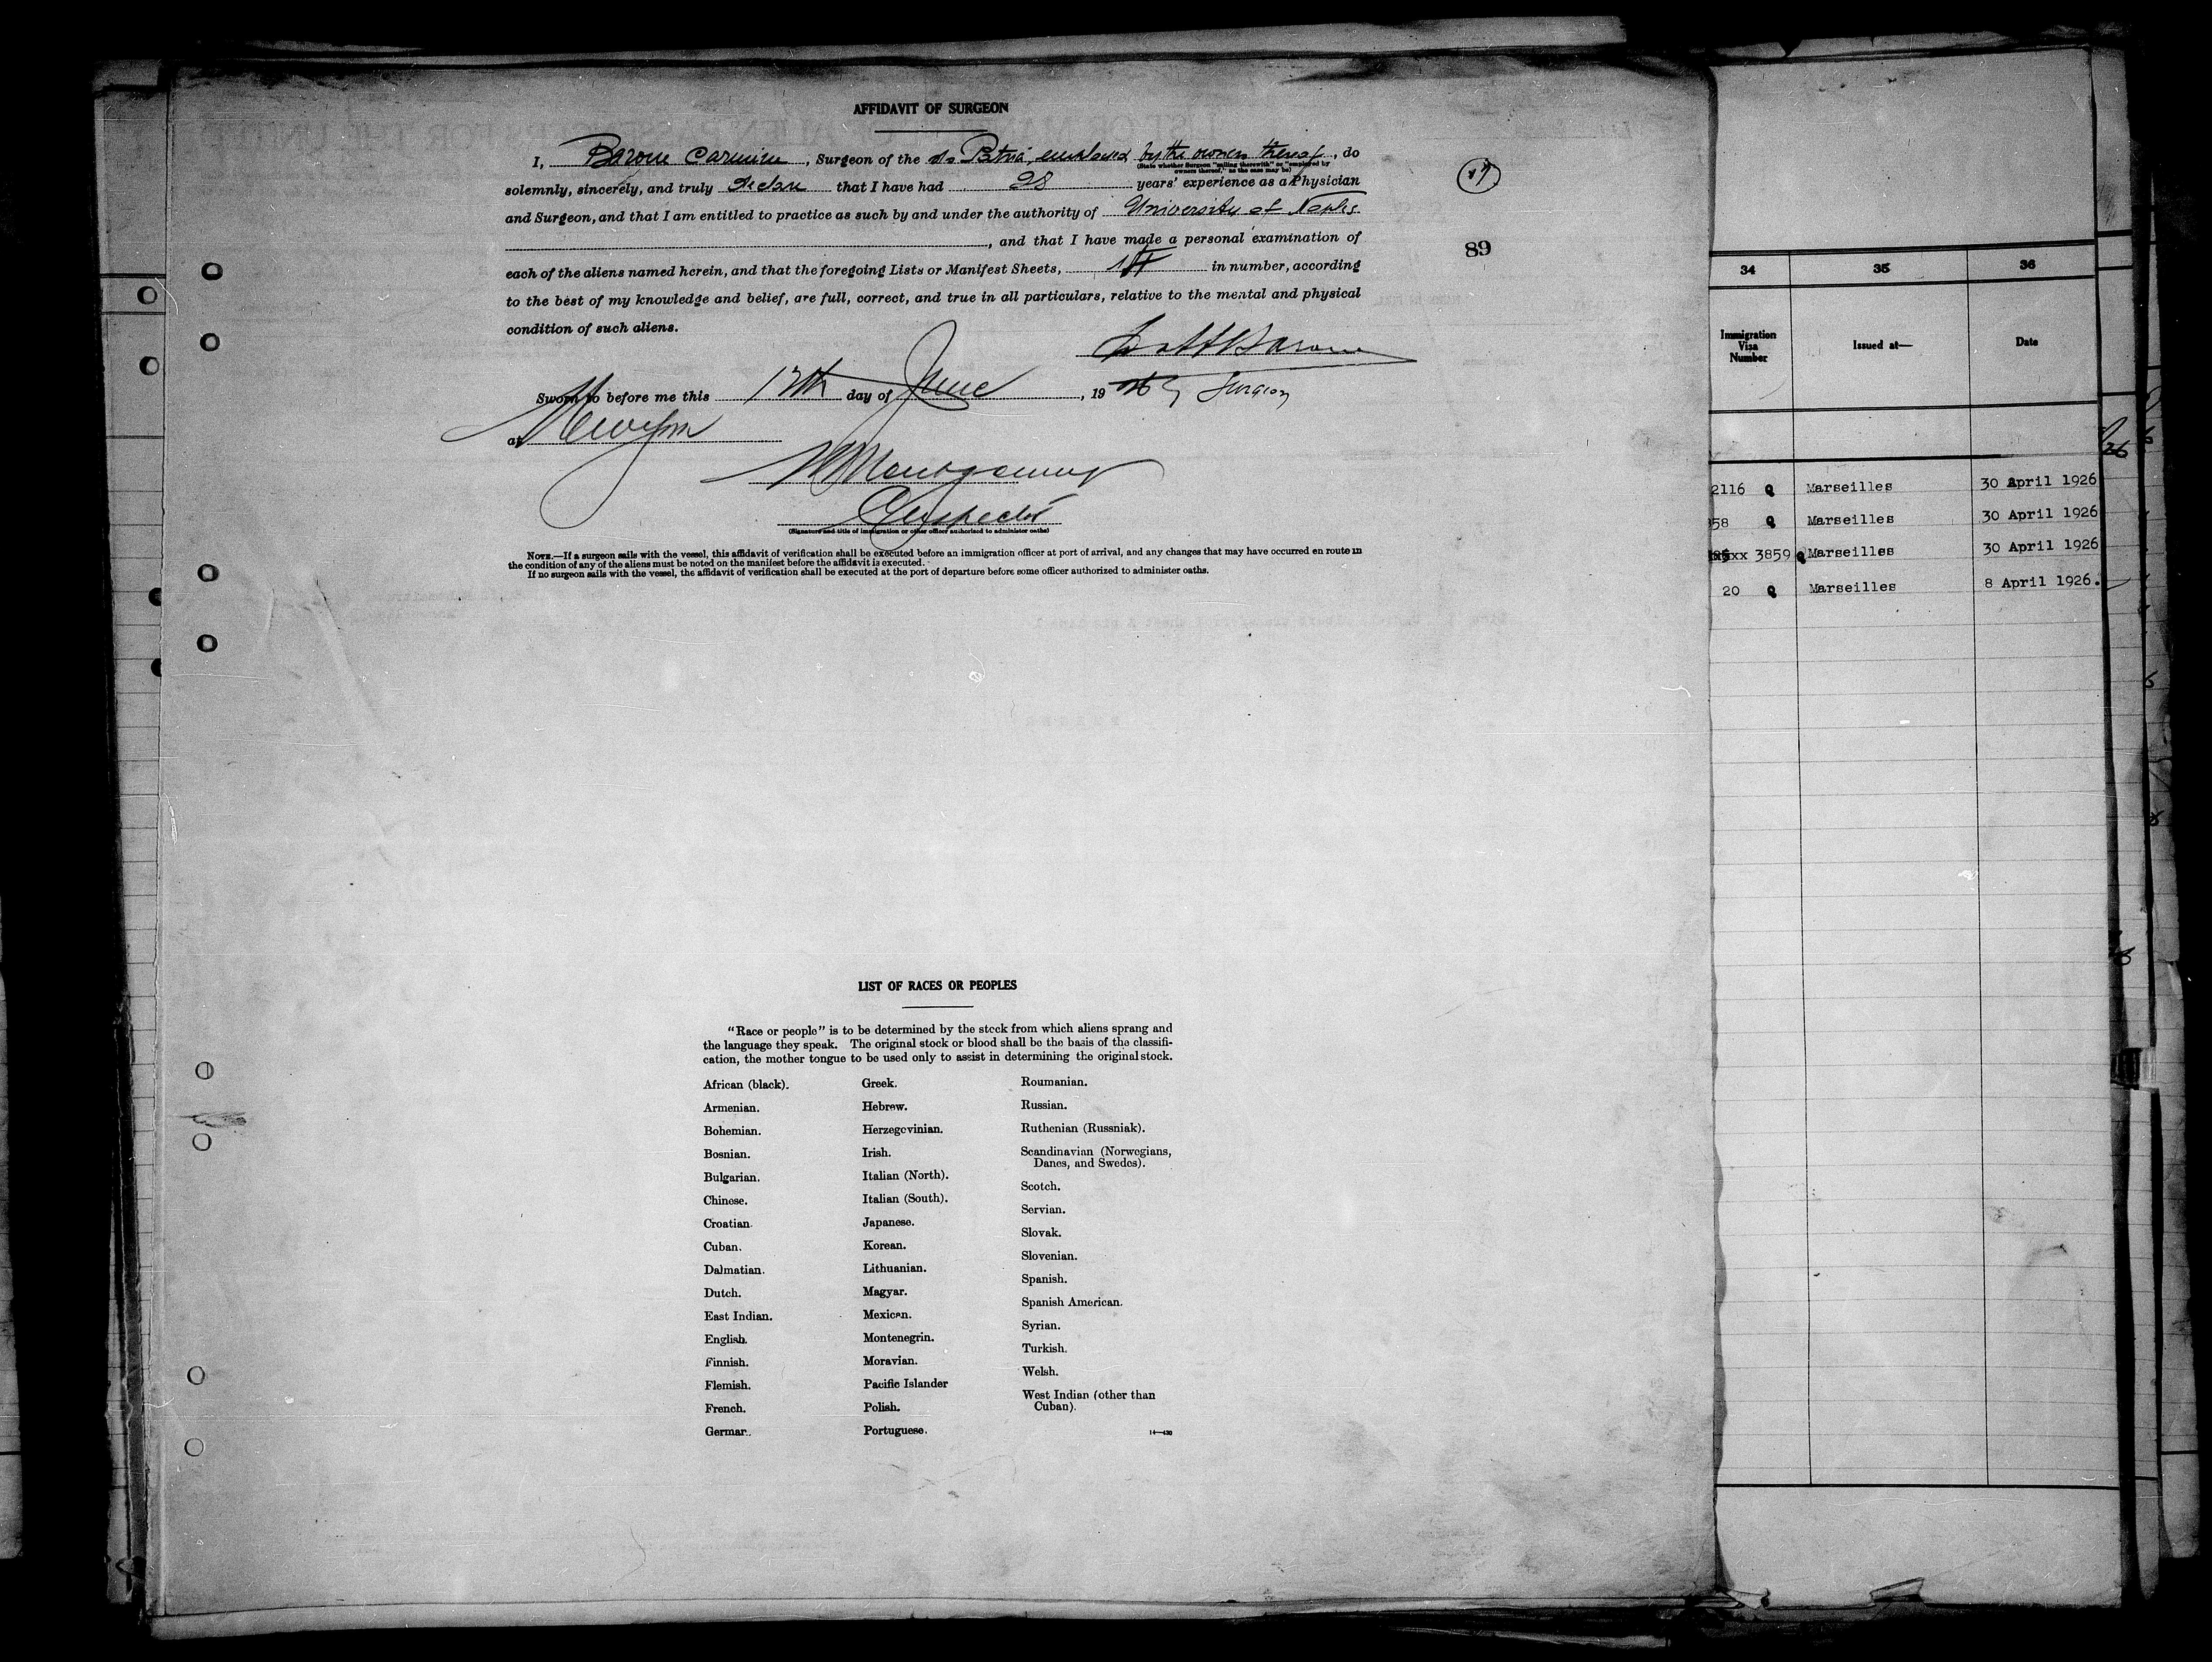 AFFIDAVIT OF SURGEON
I, Barone Carmine, Surgeon of the s/s Patria, employed by the owners thereof, do
(State whether Surgeon "sailing therewith" or "employed by
owners thereof," as the case may be)
solemnly, sincerely, and truly declare that I have had 28 years' experience as a Physician
and Surgeon, and that I am entitled to practice as such by and under the authority of University of Naples
, and that I have made a personal examination of
each of the aliens named herein, and that the foregoing Lists or Manifest Sheets, in number, according
to the best of my knowledge and belief, are full, correct, and true in all particulars, relative to the mental and physical
condition of such aliens.
Dott Barone
Sworn to before me this day of June, 19 Surgeon
at
Montgomery
Inspector
(Signature and title of immigration or other officer authorized to administer oaths)
NOTE.—If a surgeon sails with the vessel, this affidavit of verification shall be executed before an immigration officer at port of arrival, and any changes that may have occurred en route in
the condition of any of the aliens must be noted on the manifest before the affidavit is executed.
If no surgeon sails with the vessel, the affidavit of verification shall be executed at the port of departure before some officer authorized to administer oaths.
89
LIST OF RACES OR PEOPLES
"Race or people" is to be determined by the stock from which aliens sprang and
the language they speak. The original stock or blood shall be the basis of the classifi-
cation, the mother tongue to be used only to assist in determining the original stock.
African (black).
Armenian.
Bohemian.
Bosnian.
Bulgarian.
Chinese.
Croatian.
Cuban.
Dalmatian.
Dutch.
East Indian.
English.
Finnish.
Flemish.
French.
German.
Greek.
Hebrew.
Herzegovinian.
Irish.
Italian (North).
Italian (South).
Japanese.
Korean.
Lithuanian.
Magyar.
Mexican.
Montenegrin.
Moravian.
Pacific Islander
Polish.
Portuguese.
Roumanian.
Russian.
Ruthenian (Russniak).
Scandinavian (Norwegians,
Danes, and Swedes).
Scotch.
Servian.
Slovak.
Slovenian.
Spanish.
Spanish American.
Syrian.
Turkish.
Welsh.
West Indian (other than
Cuban).
14—430
34 35 36
Immigration
Visa
Number
Issued at—
Date
2116 Q Marseilles 30 April 1926
858 Q Marseilles 30 April 1926
xxx 3859 Q Marseilles 30 April 1926
20 Q Marseilles 8 April 1926.